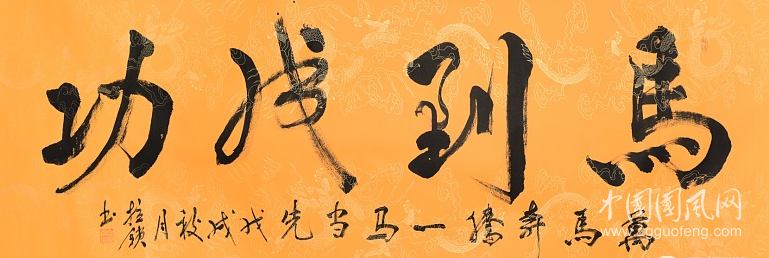 馬到成功
萬馬奔腾一马当先戊戌秋月书
中国国风网
www.zgguofeng.com